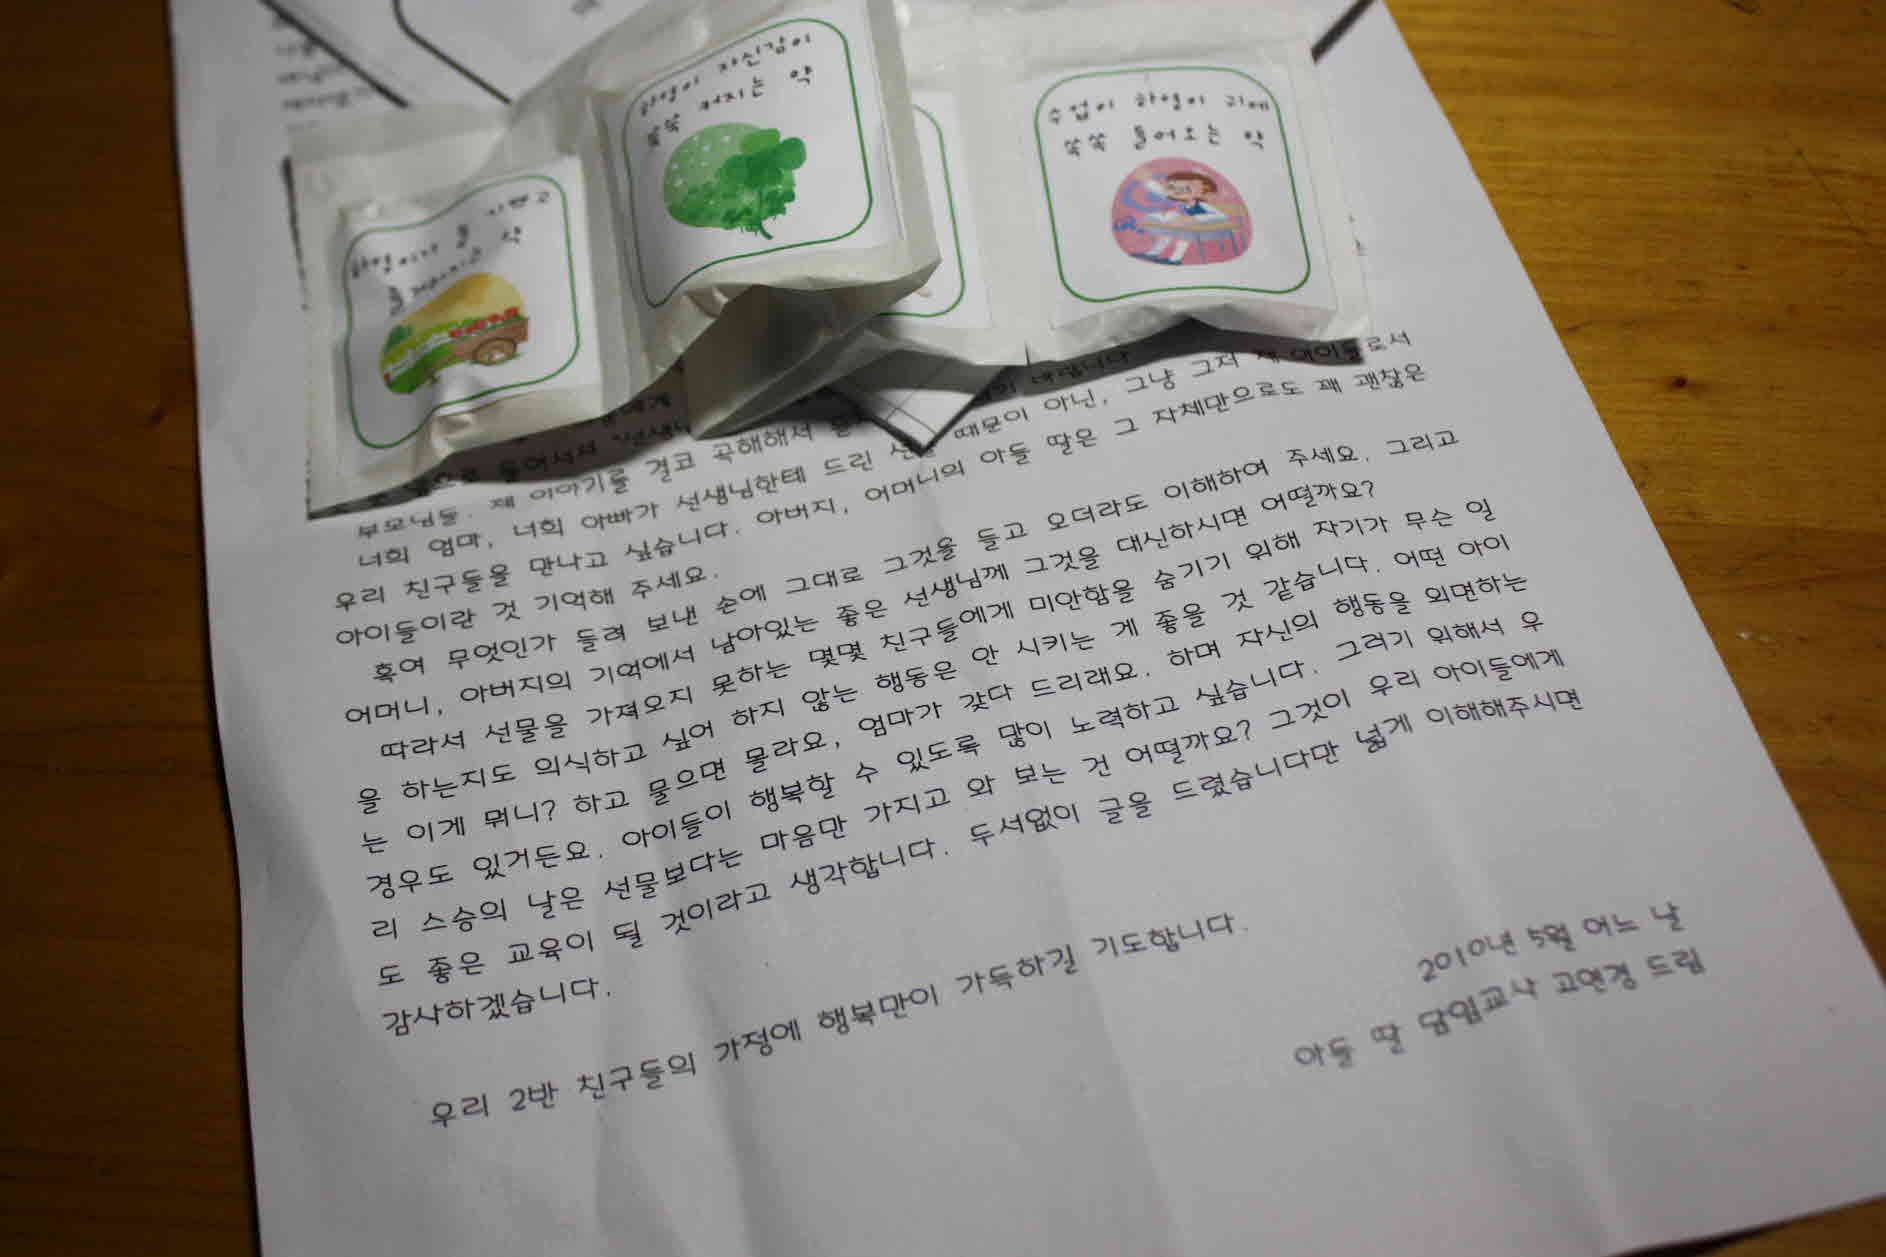 하엽이 자신감이
쑥쑥 커지는 약
수업이 하엽이 귀에
쑥쑥 들어오는 약
때문이 아닌, 그냥 그저 제 아이들로서
부모님들. 제 이야기를 결코 곡해해서
너희 엄마, 너희 아빠가 선생님한테 드린 선물
우리 친구들을 만나고 싶습니다. 아버지, 어머니의 아들 딸은 그 자체만으로도 꽤 괜찮은
아이들이란 것 기억해 주세요.
혹여 무엇인가 들려 보낸 손에 그대로 그것을 들고 오더라도 이해하여 주세요. 그리고
어머니, 아버지의 기억에서 남아있는 좋은 선생님께 그것을 대신하시면 어떨까요?
따라서 선물을 가져오지 못하는 몇몇 친구들에게 미안함을 숨기기 위해 자기가 무슨 일
을 하는지도 의식하고 싶어 하지 않는 행동은 안 시키는 게 좋을 것 같습니다. 어떤 아이
는 이게 뭐니? 하고 물으면 몰라요, 엄마가 갖다 드리래요. 하며 자신의 행동을 외면하는
경우도 있거든요. 아이들이 행복할 수 있도록 많이 노력하고 싶습니다. 그러기 위해서 우
리 스승의 날은 선물보다는 마음만 가지고 와 보는 건 어떨까요? 그것이 우리 아이들에게
도 좋은 교육이 될 것이라고 생각합니다. 두서없이 글을 드렸습니다만 넓게 이해해주시면
감사하겠습니다.
우리 2반 친구들의 가정에 행복만이 가득하길 기도합니다.
2010년 5월 어느 날
아들 딸 담임교사 고연경 드림